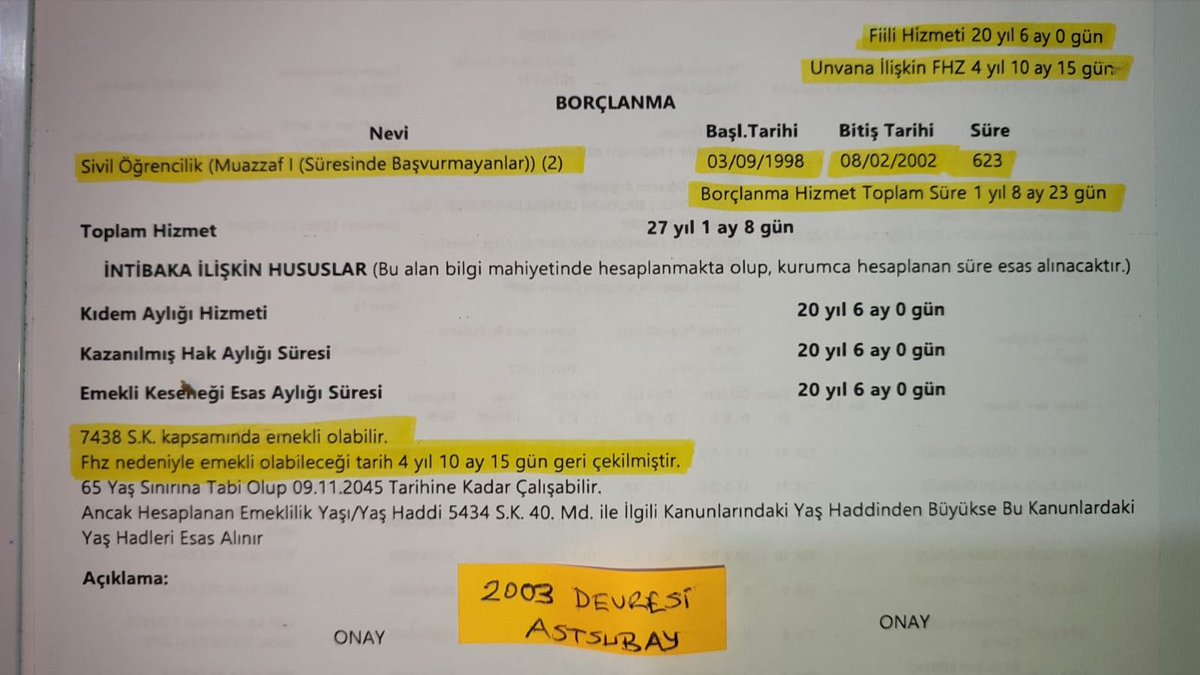 Fiili Hizmeti 20 yıl 6 ay 0 gün
Unvana İlişkin FHZ 4 yıl 10 ay 15 gün
BORÇLANMA
Nevi Başl.Tarihi Bitiş Tarihi Süre
Sivil Öğrencilik (Muazzaf I (Süresinde Başvurmayanlar)) (2) 03/09/1998 08/02/2002 623
Borçlanma Hizmet Toplam Süre 1 yıl 8 ay 23 gün
Toplam Hizmet 27 yıl 1 ay 8 gün
İNTİBAKA İLİŞKİN HUSUSLAR (Bu alan bilgi mahiyetinde hesaplanmakta olup, kurumca hesaplanan süre esas alınacaktır.)
Kıdem Aylığı Hizmeti 20 yıl 6 ay 0 gün
Kazanılmış Hak Aylığı Süresi 20 yıl 6 ay 0 gün
Emekli Keseneği Esas Aylığı Süresi 20 yıl 6 ay 0 gün
7438 S.K. kapsamında emekli olabilir.
Fhz nedeniyle emekli olabileceği tarih 4 yıl 10 ay 15 gün geri çekilmiştir.
65 Yaş Sınırına Tabi Olup 09.11.2045 Tarihine Kadar Çalışabilir.
Ancak Hesaplanan Emeklilik Yaşı/Yaş Haddi 5434 S.K. 40. Md. ile İlgili Kanunlarındaki Yaş Haddinden Büyükse Bu Kanunlardaki
Yaş Hadleri Esas Alınır
Açıklama:
2003 DEVRESİ
ASTSUBAY
ONAY ONAY